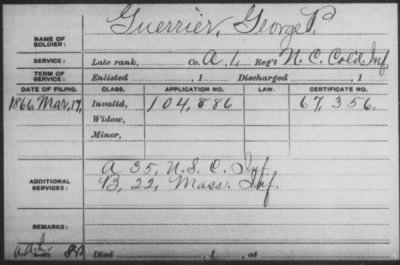 NAME OF SOLDIER: Guerrier, George P.
SERVICE: Late rank, Co. A, 1, Reg't N. C. Cold Inf.
TERM OF SERVICE: Enlisted , 1 Discharged , 1
DATE OF FILING. CLASS. APPLICATION NO. LAW. CERTIFICATE NO.
1866, Mar. 17, Invalid, 104,886 67,356.
Widow,
Minor,
ADDITIONAL SERVICES: A 35, U. S. C. Inf.
B, 22, Mass. Inf.
REMARKS:
Died , 1 , at